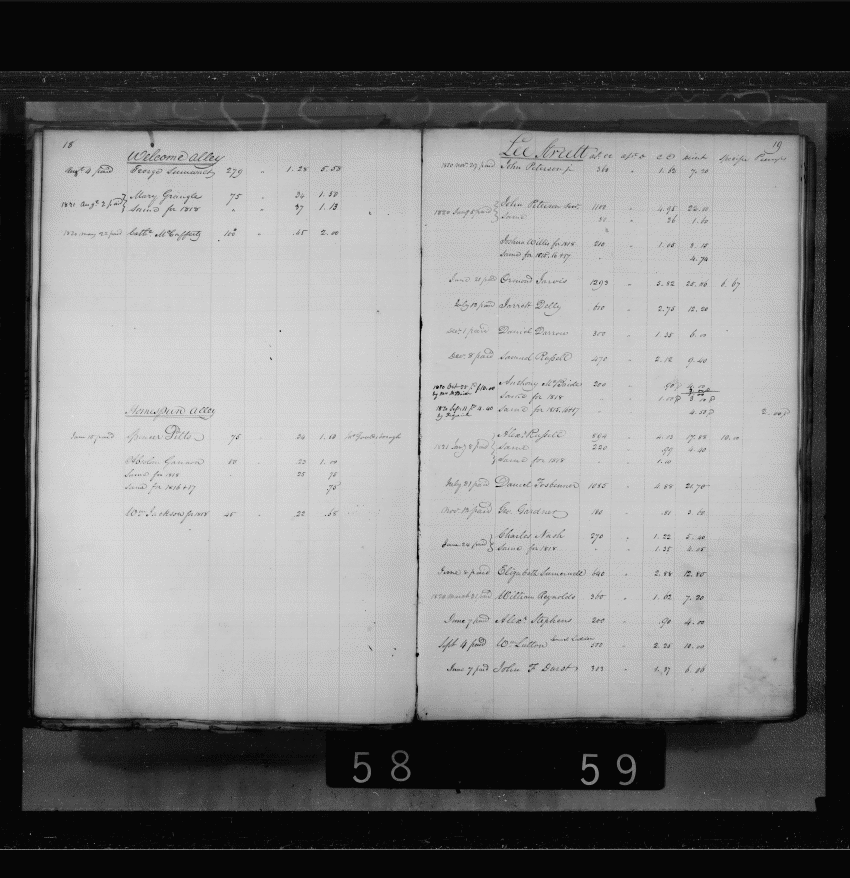 18
Welcome alley
Aug. 4 paid George Summerall 279 " 1.28 5.58
Mary Grangle 75 " 34 1.50
1821 Aug. 2 paid Same for 1818 " " 37 1.13
1820 may 22 paid Cath. McCafferty 100 " .45 2.00
Homespun alley
June 15 paid Spencer Pitts 75 " 34 1.50
Gannon 50 " 23 1.00
Same for 1818 25 75
Same for 1816 & 17 .75
Wm Jackson for 1818 45 " 22 .68
19
Lee Street
1820 nov 29 paid John Peterson jr 360 " 1.62 7.20
John Peterson Senr. 1100 " 4.95 22.00
1820 paid Same 80 " 36 1.60
Joshua Willis for 1818 210 " 1.05 3.15
Same for 1815, 16 & 17 " 4.74
Ormond Jarvis 1293 " 5.82 25.86 6.67
July 12 paid Jarrett Delly 610 " 2.75 12.20
Nov. 1 paid Daniel Darrow 300 " 1.35 6.00
Dec. 8 paid Samuel Russell 470 " 2.12 9.40
1820 Oct 28 Anthony McBride 200 " 90 4.00
by Mr McBride Same for 1818 1.00 3.00
1821 Sep. 11 4.40 Same for 1815, 16 & 17 " 4.50 2.00
Alexr Russell 894 " 4.03 17.88 10.00
1821 Jany 8 paid Same 220 " 99 4.40
Same for 1818 " " 1.10
July 31 paid Daniel Fosbenner 1085 " 4.88 21.70
Nov. 13 paid Geo. Gardner 180 " .81 3.60
Charles Nash 270 " 1.22 5.40
June 24 paid Same for 1818 " " 1.35 4.05
June 2 paid Elizabeth Sumerwell 640 " 2.88 12.80
1820 March 31 paid William Reynolds 360 " 1.62 7.20
June 7 paid Alexr Stephens 200 " .90 4.00
Sept 4 paid Wm Sutton 500 " 2.25 10.00
June 7 paid John F Darot 303 " 1.37 6.06
58
59